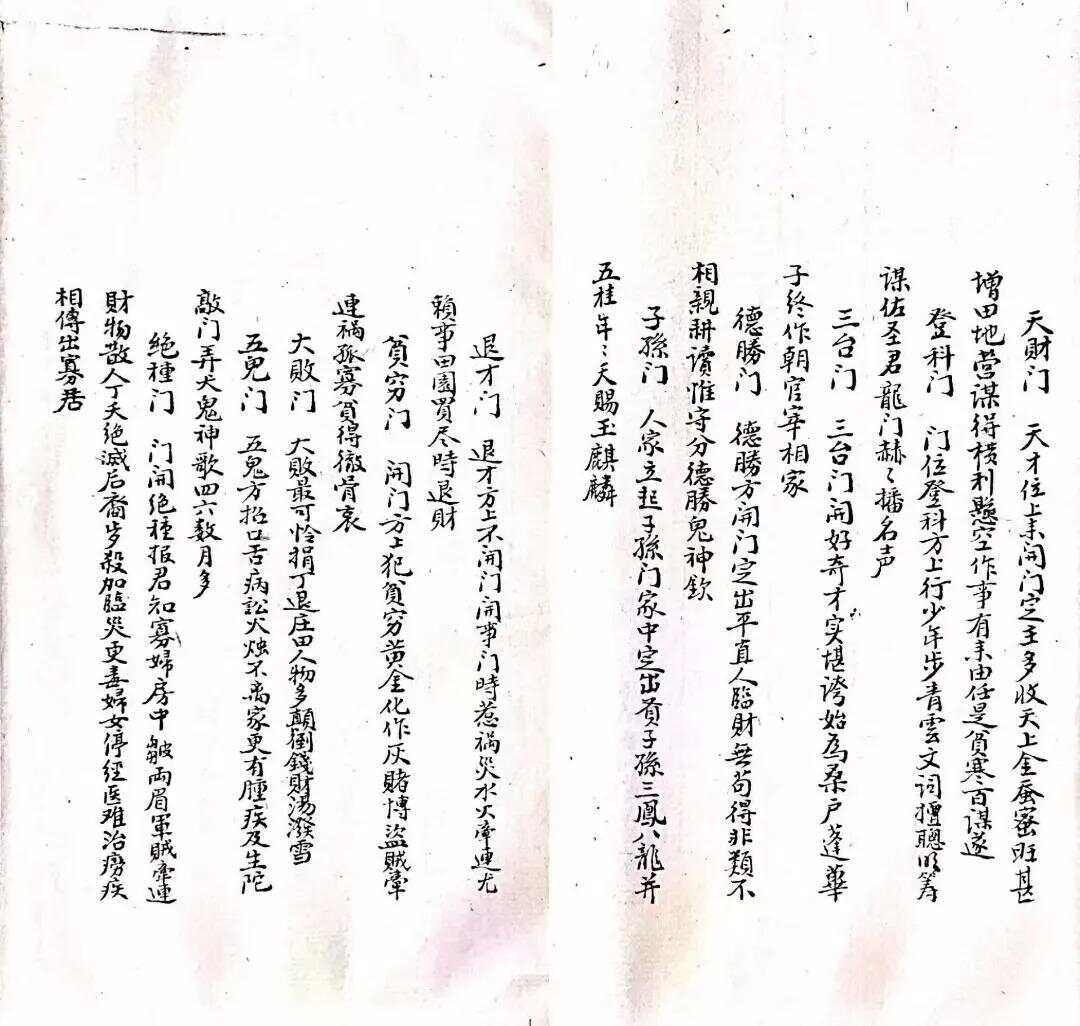 天財门　天才位上来开门定主多收天上金蚕蜜旺甚
增田地营谋得横利懸空作事有来由任是貧寒百谋遂
登科门　门位登科方上行少年步青雲文词擅聰明筹
谋佐圣君龍门赫〻播名声
三台门　三台门開好奇才实堪誇始為桑户蓬蓽
子终作朝官宰相家
德勝门　德勝方開门定出平直人臨財無苟得非類不
相親耕讀惟守分德勝鬼神欽
子孫门　人家立起子孫门家中定出貢子孫三鳳八龍并
五桂年〻天賜玉麒麟
退才门　退才方上不开门開事门時惹祸災水火牵連尤
賴事田園買尽時退財
貧穷门　開门方上犯貧穷黄金化作灰赌博盜贼牽
連祸孤寡貧得徹骨哀
大敗门　大敗最可怜捐丁退庄田人物多顛倒錢財湯潑雪
五鬼门　五鬼方招口舌病訟火烛不离家更有腫疾及生陀
敲门弄犬鬼神歌四六数月多
绝種门　门開绝種报君知寡婦房中皺両眉軍賊牵連
財物散人丁夭绝滅后裔步殺加臨災更毒婦女停經医难治癆疾
相傳出寡居